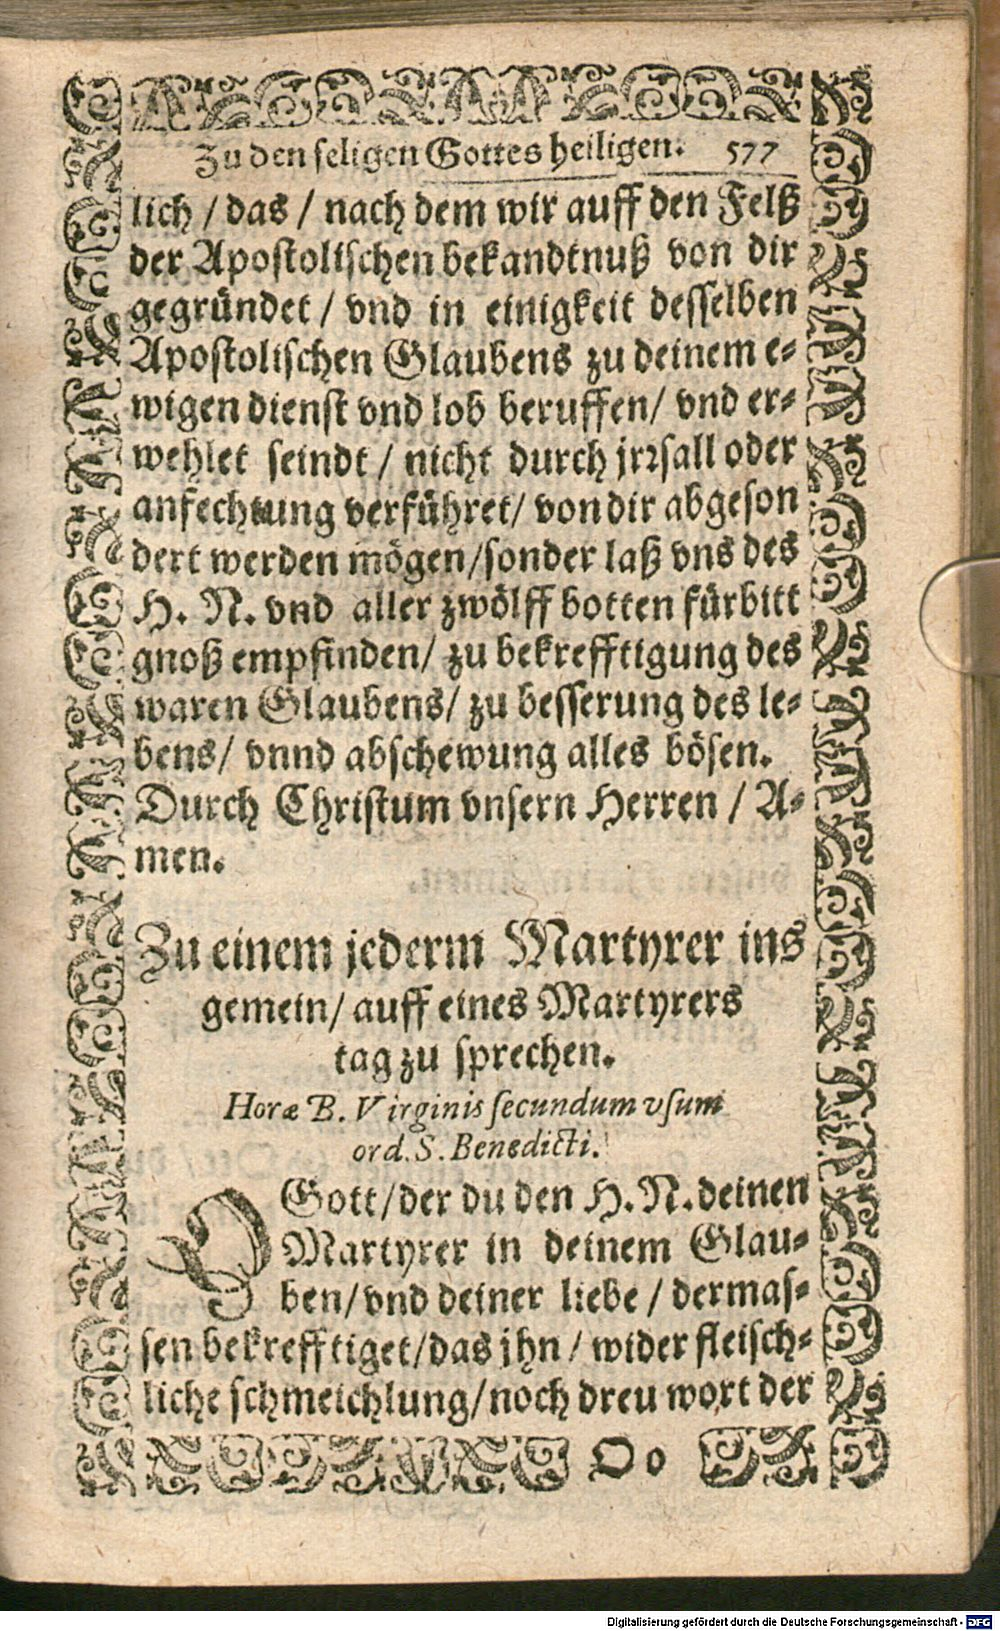 Zu den seligen Gottes heiligen. 577
lich / das / nach dem wir auff den Felß
der Apostolischen bekandtnuß von dir
gegründet / vnd in einigkeit desselben
Apostolischen Glaubens zu deinem e-
wigen dienst vnd lob beruffen / vnd er-
wehlet seindt / nicht durch jrrsall oder
anfechtung verführet / von dir abgeson
dert werden mögen / sonder laß vns des
H. N. vnd aller zwölff botten fürbitt
gnoß empfinden / zu bekrefftigung des
waren Glaubens / zu besserung des le-
bens / vnnd abschewung alles bösen.
Durch Christum vnsern Herren / A-
men.
Zu einem jederm Martyrer ins
gemein / auff eines Martyrers
tag zu sprechen.
Horæ B. Virginis secundum vsum
ord. S. Benedicti.
O Gott / der du den H. N. deinen
Martyrer in deinem Glau-
ben / vnd deiner liebe / dermas-
sen bekrefftiget / das jhn / wider fleisch-
liche schmeichlung / noch dreu wort der
Oo
Digitalisierung gefördert durch die Deutsche Forschungsgemeinschaft - DFG